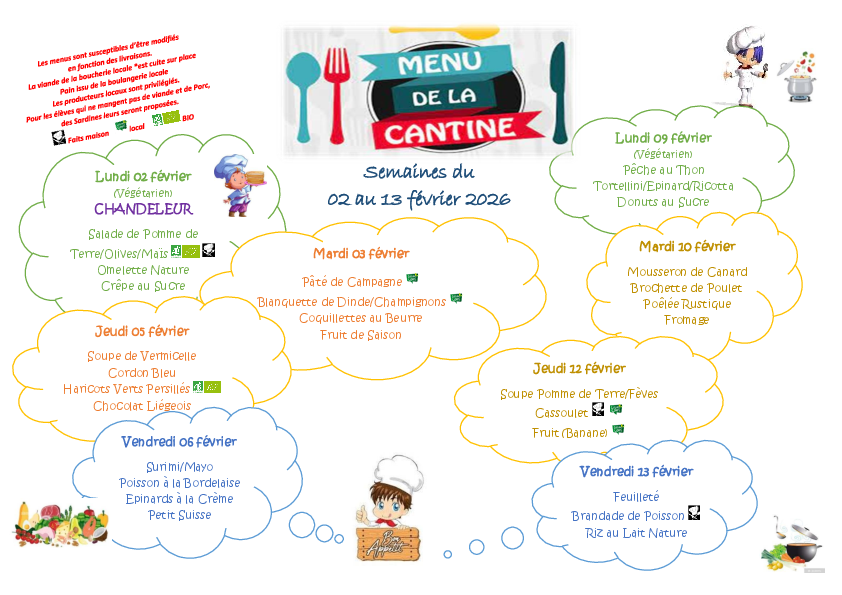 Les menus sont susceptibles d'être modifiés
en fonction des livraisons.
La viande de la boucherie locale *est cuite sur place
Pain issu de la boulangerie locale
Les producteurs locaux sont privilégiés.
Pour les élèves qui ne mangent pas de viande et de Porc,
des Sardines leurs seront proposées.
Faits maison local BIO
MENU
DE LA
CANTINE
Semaines du
02 au 13 février 2026
Lundi 02 février
(Végétarien)
CHANDELEUR
Salade de Pomme de
Terre/Olives/Maïs
Omelette Nature
Crêpe au Sucre
Mardi 03 février
Pâté de Campagne
Blanquette de Dinde/Champignons
Coquillettes au Beurre
Fruit de Saison
Jeudi 05 février
Soupe de Vermicelle
Cordon Bleu
Haricots Verts Persillés
Chocolat Liégeois
Vendredi 06 février
Surimi/Mayo
Poisson à la Bordelaise
Epinards à la Crème
Petit Suisse
Lundi 09 février
(Végétarien)
Pêche au Thon
Tortellini/Epinard/Ricotta
Donuts au Sucre
Mardi 10 février
Mousseron de Canard
Brochette de Poulet
Poêlée Rustique
Fromage
Jeudi 12 février
Soupe Pomme de Terre/Fèves
Cassoulet
Fruit (Banane)
Vendredi 13 février
Feuilleté
Brandade de Poisson
Riz au Lait Nature
Bon
Appétit